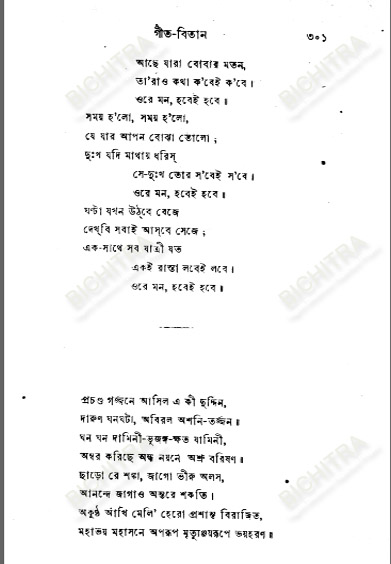 গীত-বিতান ৩০১
আছে যারা বোবার মতন,
তা'রাও কথা ক'বেই ক'বে।
ওরে মন, হবেই হবে॥
সময় হ'লো, সময় হ'লো,
যে যার আপন বোঝা তোলো;
দুঃখ যদি মাথায় ধরিস্
সে-দুঃখ তোর স'বেই স'বে।
ওরে মন, হবেই হবে॥
ঘণ্টা যখন উঠ্‌বে বেজে
দেখ্‌বি সবাই আস্‌বে সেজে;
এক-সাথে সব যাত্রী যত
একই রাস্তা লবেই লবে।
ওরে মন, হবেই হবে॥
প্রচণ্ড গর্জ্জনে আসিল এ কী দুর্দ্দিন,
দারুণ ঘনঘটা, অবিরল অশনি-তর্জ্জন॥
ঘন ঘন দামিনী-ভুজঙ্গ-ক্ষত যামিনী,
অম্বর করিছে অন্ধ নয়নে অশ্রু বরিষণ॥
ছাড়ো রে শঙ্কা, জাগো ভীরু অলস,
আনন্দে জাগাও অন্তরে শকতি।
অকুণ্ঠ আঁখি মেলি' হেরো প্রশান্ত বিরাজিত,
মহাভয় মহাসনে অপরূপ মৃত্যুঞ্জয়রূপে ভয়হরণ॥
BICHITRA
BICHITRA
BICHITRA
BICHITRA
BICHITRA
BICHITRA